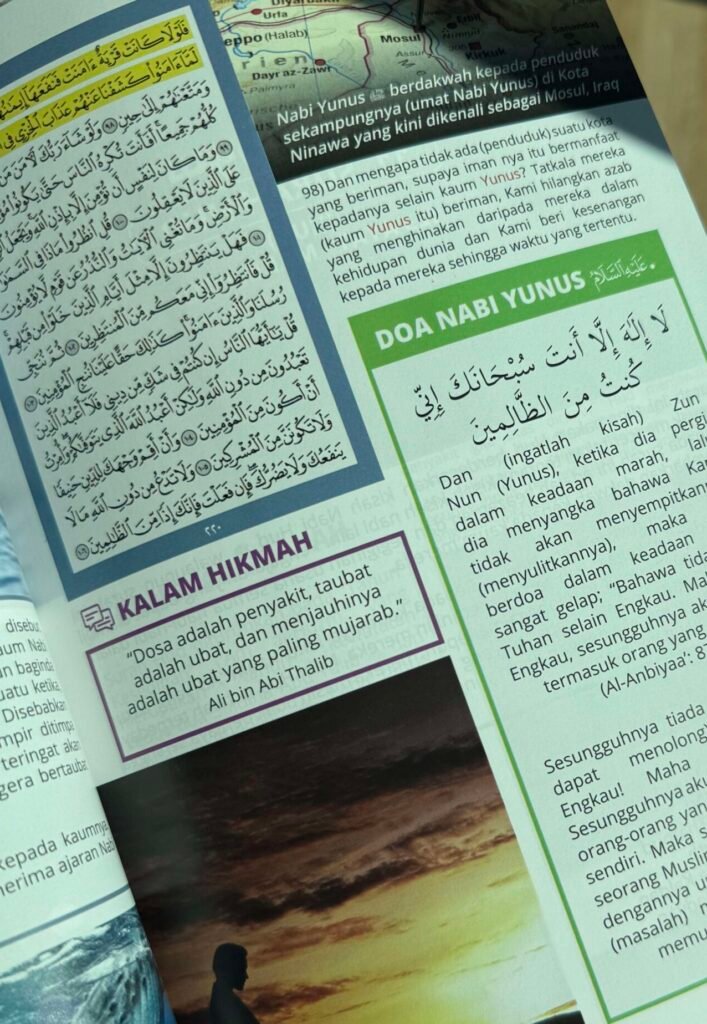 Diyarbakır
Urfa
eppo (Halab)
Mosul
Erbil
Kirkuk
Sanandaj
Dayr az-Zawr
Palmyra
Nabi Yunus berdakwah kepada penduduk
sekampungnya (umat Nabi Yunus) di Kota
Ninawa yang kini dikenali sebagai Mosul, Iraq
98) Dan mengapa tidak ada (penduduk) suatu kota
yang beriman, supaya iman nya itu bermanfaat
kepadanya selain kaum Yunus? Tatkala mereka
(kaum Yunus itu) beriman, Kami hilangkan azab
yang menghinakan daripada mereka dalam
kehidupan dunia dan Kami beri kesenangan
kepada mereka sehingga waktu yang tertentu.
فَلَوْلَا كَانَتْ قَرْيَةٌ ءَامَنَتْ فَنَفَعَهَا إِيمَنُهَا
لَمَّا ءَامَنُوا كَشَفْنَا عَنْهُمْ عَذَابَ الْخِزْيِ فِي
وَمَتَّعْنَهُمْ إِلَى حِينٍ ٩٨ وَلَوْ شَاءَ رَبُّكَ لَآمَنَ مَن
كُلُّهُمْ جَمِيعًا أَفَأَنتَ تُكْرِهُ النَّاسَ حَتَّى يَكُونُوا
٩٩ وَمَا كَانَ لِنَفْسٍ أَن تُؤْمِنَ إِلَّا بِإِذْنِ اللَّهِ وَيَجْعَلُ
عَلَى الَّذِينَ لَا يَعْقِلُونَ ١٠٠ قُلِ انظُرُوا مَاذَا فِي السَّمَوَ
وَالْأَرْضِ وَمَا تُغْنِي الْآيَتُ وَالنُّذُرُ عَن قَوْمٍ لَّا يُؤْمِنُونَ
١٠١ فَهَلْ يَنتَظِرُونَ إِلَّا مِثْلَ أَيَّامِ الَّذِينَ خَلَوْا مِن قَبْلِهِمْ
قُلْ فَانتَظِرُوا إِنِّي مَعَكُم مِّنَ الْمُنتَظِرِينَ ١٠٢ ثُمَّ نُنَجِّي
رُسُلَنَا وَالَّذِينَ ءَامَنُوا كَذَلِكَ حَقًّا عَلَيْنَا نُنجِ الْمُؤْمِنِينَ ١٠٣
قُلْ يَأَيُّهَا النَّاسُ إِن كُنتُمْ فِي شَكٍّ مِّن دِينِي فَلَا أَعْبُدُ الَّذِينَ
تَعْبُدُونَ مِن دُونِ اللَّهِ وَلَكِنْ أَعْبُدُ اللَّهَ الَّذِي يَتَوَفَّىكُمْ وَأُمِرْتُ
أَنْ أَكُونَ مِنَ الْمُؤْمِنِينَ ١٠٤ وَأَنْ أَقِمْ وَجْهَكَ لِلدِّينِ حَنِيفًا
وَلَا تَكُونَنَّ مِنَ الْمُشْرِكِينَ ١٠٥ وَلَا تَدْعُ مِن دُونِ اللَّهِ مَا لَا
يَنفَعُكَ وَلَا يَضُرُّكَ فَإِن فَعَلْتَ فَإِنَّكَ إِذًا مِّنَ الظَّالِمِينَ ١٠٦
٢٢٠
KALAM HIKMAH
“Dosa adalah penyakit, taubat
adalah ubat, dan menjauhinya
adalah ubat yang paling mujarab.”
Ali bin Abi Thalib
DOA NABI YUNUS عَلَيْهِ السَّلَامُ
لَا إِلَهَ إِلَّا أَنتَ سُبْحَانَكَ إِنِّي
كُنتُ مِنَ الظَّالِمِينَ
Dan (ingatlah kisah) Zun
Nun (Yunus), ketika dia pergi
dalam keadaan marah, lalu
dia menyangka bahawa Kam
tidak akan menyempitkann
(menyulitkannya), maka
berdoa dalam keadaan
sangat gelap; “Bahawa tida
Tuhan selain Engkau. Ma
Engkau, sesungguhnya ak
termasuk orang yang
(Al-Anbiyaa': 8
Sesungguhnya tiada
dapat menolong
Engkau! Maha
Sesungguhnya aku
orang-orang yan
sendiri. Maka s
seorang Muslim
dengannya u
(masalah) m
memu
disebut,
aum Nabi
n baginda
uatu ketika,
Disebabkan
mpir ditimpa
teringat akan
gera bertaubat
kepada kaumnya,
nerima ajaran Nabi